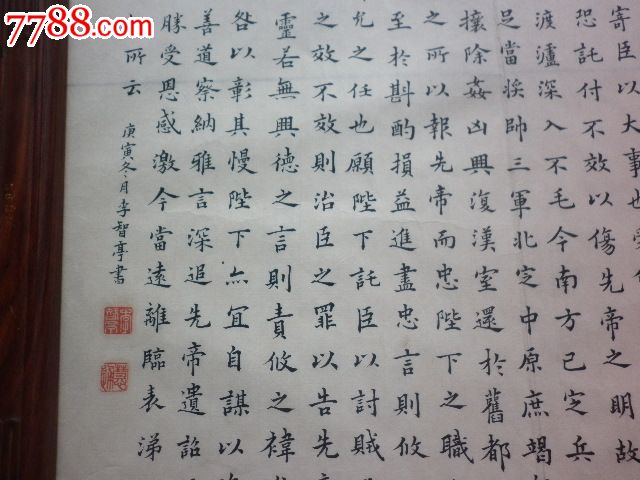 7788.com
寄臣以大事也受
恐託付不效以傷先帝之明故
渡瀘深入不毛今南方已定兵
足當奬帥三軍北定中原庶竭
攘除姦凶興復漢室還於舊都
之所以報先帝而忠陛下之職
至於斟酌損益進盡忠言則攸
允之任也願陛下託臣以討賊
之效不效則治臣之罪以告先
靈若無興德之言則責攸之褘
咎以彰其慢陛下亦宜自謀以
善道察納雅言深追先帝遺詔
勝受恩感激今當遠離臨表涕
所云
庚寅冬月李智亭書